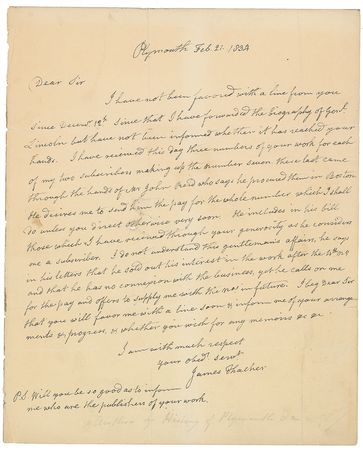 Plymouth Feb. 21. 1834
Dear Sir
I have not been favored with a line from you
Since Decemr. 12th Since that I have forwarded the Biography of Genl.
Lincoln but have not been informed whether it has reached your
hands. I have received this day three numbers of your work for each
of my two subscribers making up the number seven these last came
through the hands of Mr John Read who says he procured them in Boston
He desires me to send him the pay for the whole number which I shall
do unless you direct otherwise very soon. He includes in his bill
those which I have received through your generosity as he considers
me a subscriber. I do not understand this gentleman's affairs, he says
in his letters that he sold out his interest in the work after the
and that he has no connexion with the business, yet he calls on me
for the pay and offers to supply me with the nos in future. I beg Dear Sir
that you will favor me with a line soon & inform me of your arrange
ments & progress, & whether you wish for any memoirs &c &c.
I am with much respect
your obedt servt
James Thacher
P.S. Will you be so good as to inform
me who are the publishers of your work.
History of Plymouth